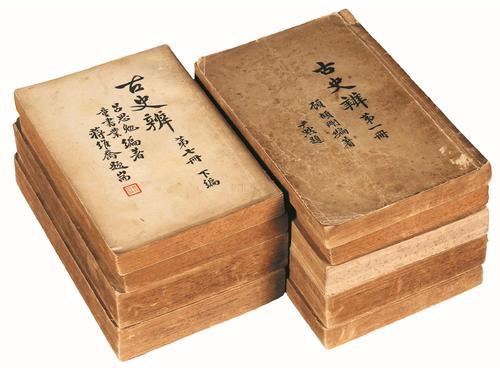 古史辨 第七冊 下編
呂思勉 編著
童書業
蔣維喬題耑
古史辨 第一冊
顧頡剛編著
尹默題